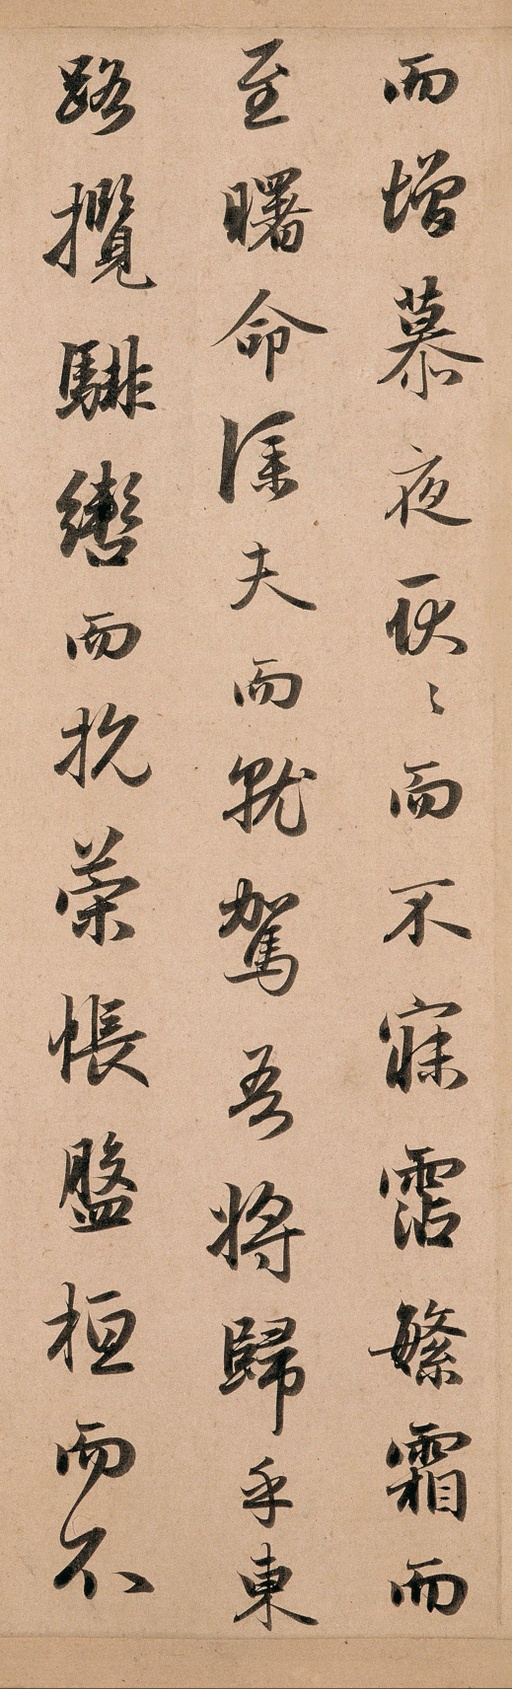 而增慕夜耿〻而不寐霑繁霜而
至曙命僕夫而就駕吾將歸乎東
路攬騑轡而抗策悵盤桓而不